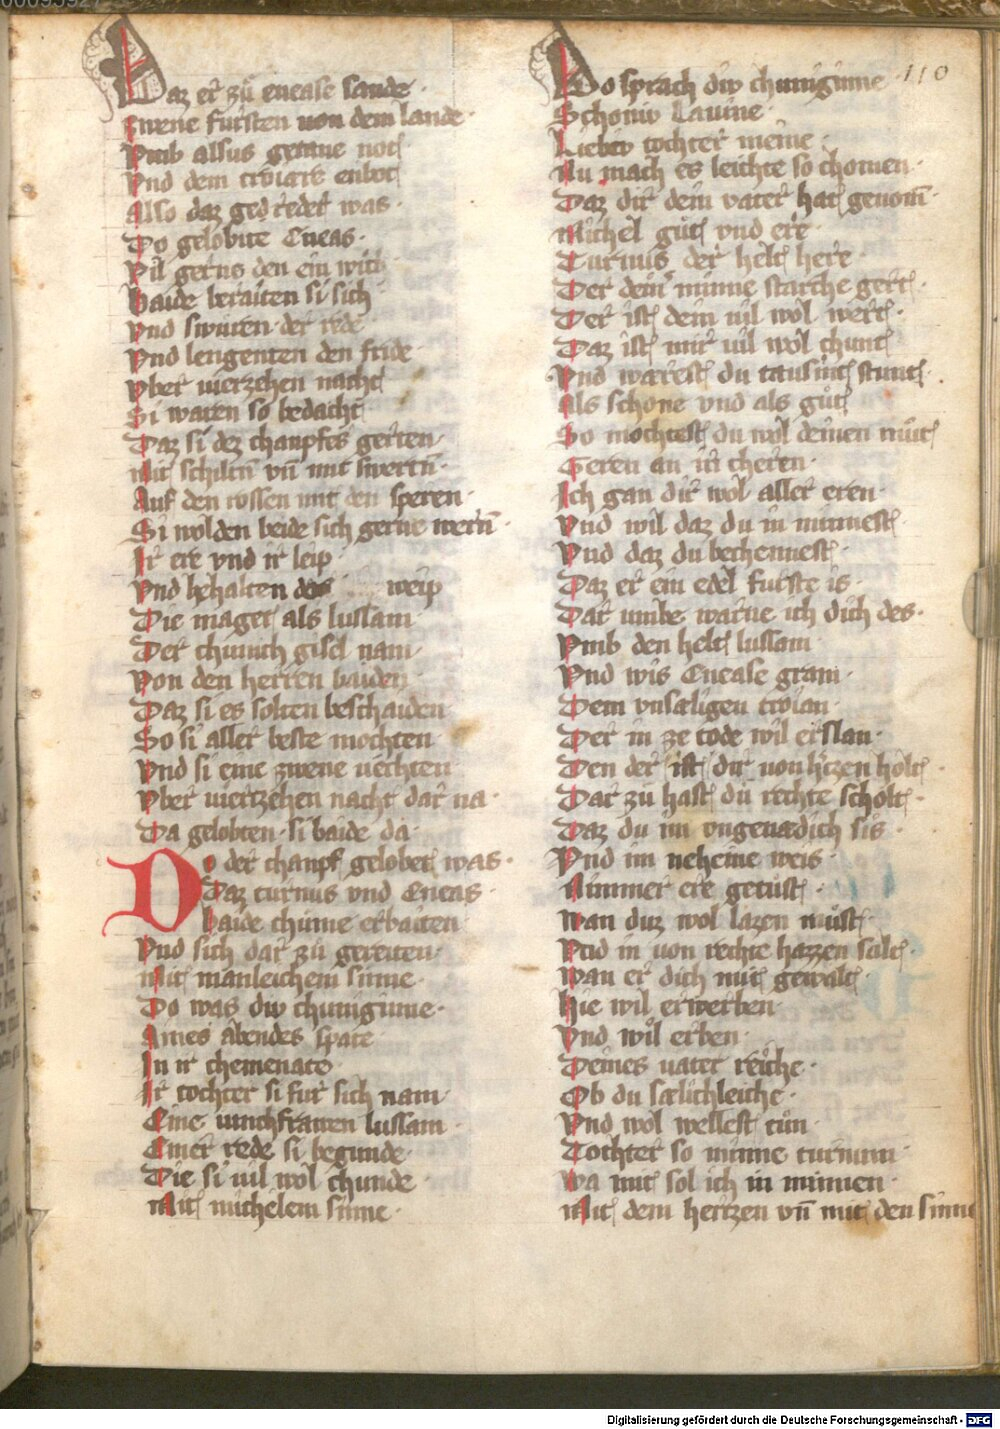 110
Daz er zů enease sande
zwene fursten von dem lande
Vmb alsus getane not
Vnd dem troiare enbot
Also daz geredet was
Do gelobite Eneas
Vil gerns den ein wich
Baide beraiten si sich
Vnd swuren der rede
Vnd lengenten den fride
Vber vierzehen nacht
Si waren so bedacht
Daz si dez champfes gerten
Mit schiltn̄ vn̄ mit swertn̄
Auf den rossen mit den speren
Si wolden beide sich gerne wern̄
Ir ere vnd ir leip
Vnd behalten daz weip
Die maget als lussam
Der chunich gisel nam
Von den herren baiden
Daz si es solten beschaiden
So si aller beste mochten
Vnd si eine zwene vechten
Vber viertzehen nacht dar na
Da gelobten si baide da
Do der champf gelobet was
Daz turnus vnd Eneas
Baide chume erbaiten
Vnd sich dar zů gereiten
Mit manleichem sinne
Do was diw chuniginne
Aines abendes spate
In ir chemenate
Ir tochter si fur sich nam
Eine iunchfrawen lussam
Einer rede si begunde
Die si vil wol chunde
Mit michelem sinne
Do sprach diw chuniginne
Schoniw Lauine
Liebew tochter meine
Nu mach es leichte so chomen
Daz dir dein vater hat genom̄
Michel gůt vnd ere
Turnus der helt here
Der deiner minne starche gert
Der ist dein vil wol wert
Daz ist mir vil wol chunt
Vnd wærest du tausint stunt
Als schone vnd als gůt
So mochtest du wol deinen můt
Geren an in cheren
Ich gan dir wol aller eren
Vnd wil daz du in minnest
Vnd daz du bechennest
Daz er ein edel furste is
Dar umbe warne ich dich des
Vmb den helt lussam
Vnd wis Enease gram
Dem vnsæligen troian
Der in ze tode wil erslan
Den der ist dir von h'zen holt
Dar zů hast du rechte scholt
Daz du im vngenædich sis
Vnd im neheine weis
Nimmer ere getůst
Wan duz wol lazen můst
Vnd in von rechte hazzen salt
Wan er dich mit gewalt
Hie wil erwerben
Vnd wil erben
Deines vater reiche
Ob du sælichleiche
Vnd wol wellest tůn
Tochter so minne turnum
Wa mit sol ich in minnen
Mit dem hertzen vn̄ mit den sinne
Digitalisierung gefördert durch die Deutsche Forschungsgemeinschaft - DFG